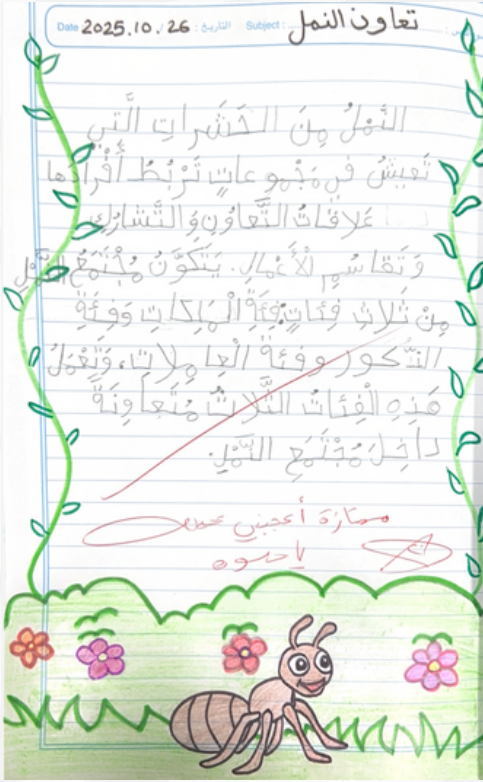 تعاون النمل
Date 2025.10.26 التاريخ: Subject:
النَّمْلُ مِنَ الحَشَراتِ الَّتي
تَعيشُ في مَجْموعاتٍ تَرْبُطُ أَفْرادَها
عَلاقاتُ التَّعاوُنِ وَالتَّشارُكِ
وَتَقاسُمِ الْأَعْمالِ. يَتَكَوَّنُ مُجْتَمَعُ النَّمْلِ
مِنْ ثَلاثِ فِئاتٍ: فِئَةُ الْمَلِكاتِ وَفِئَةُ
الذُّكورِ وفِئَةُ الْعامِلاتِ، وَتَعْمَلُ
هَذِهِ الْفِئاتُ الثَّلاثُ مُتَعاوِنَةً
داخِلَ مُجْتَمَعِ النَّمْلِ.
ممتازة أعجبني عملك
يا